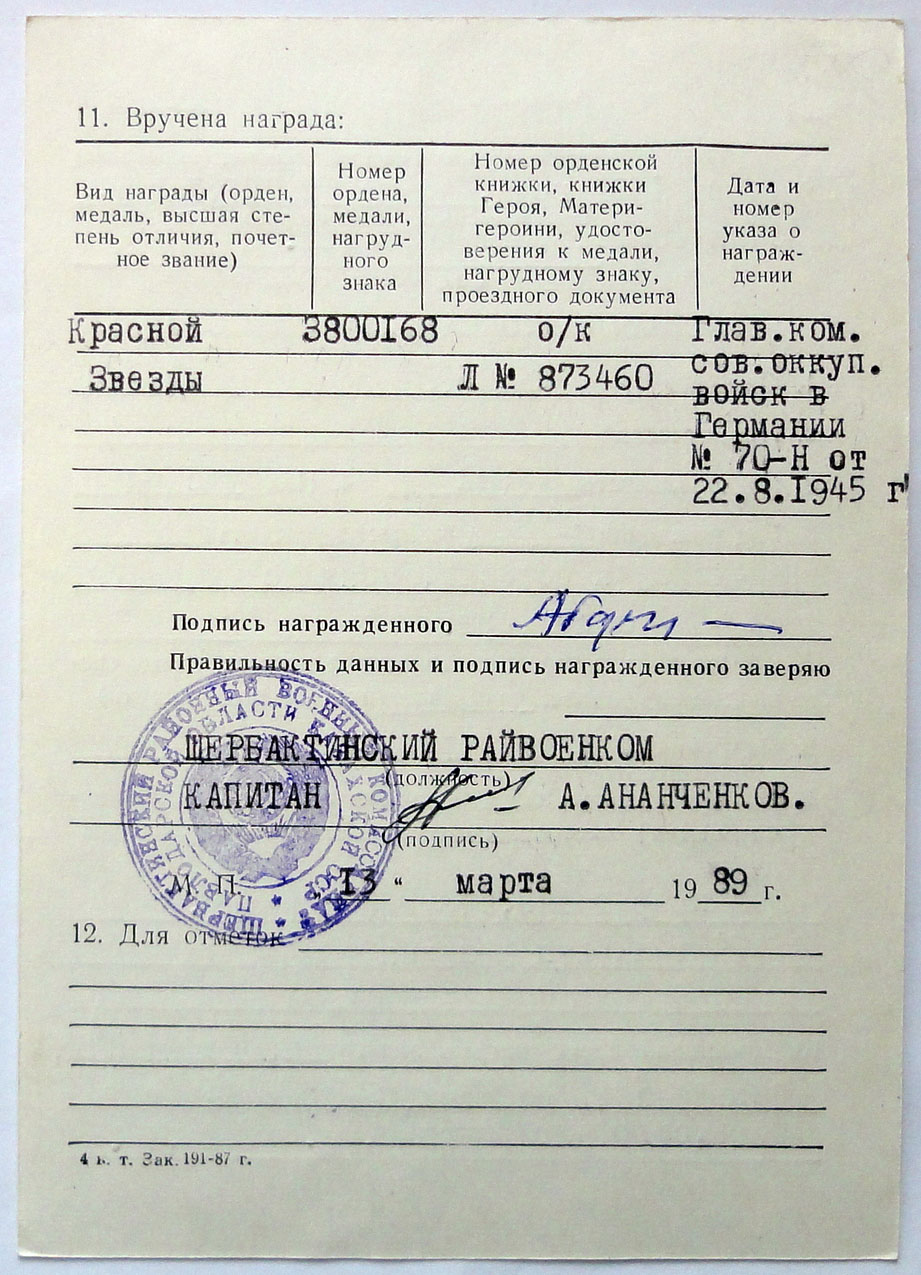 11. Вручена награда:
Вид награды (орден,
медаль, высшая сте-
пень отличия, почет-
ное звание)
Номер
ордена,
медали,
нагруд-
ного
знака
Номер орденской
книжки, книжки
Героя, Матери-
героини, удосто-
верения к медали,
нагрудному знаку,
проездного документа
Дата и
номер
указа о
награж-
дении
Красной
Звезды
3800I68
о/к
Л № 873460
Глав.ком.
сов.оккуп.
войск в
Германии
№ 70-Н от
22.8.I945 г
Подпись награжденного
Правильность данных и подпись награжденного заверяю
ЩЕРБАКТИНСКИЙ РАЙВОЕНКОМ
(должность)
КАПИТАН А.АНАНЧЕНКОВ.
(подпись)
М. П. „I3“ марта 1989 г.
ЩЕРБАКТИНСКИЙ РАЙОННЫЙ ВОЕННЫЙ КОМИССАРИАТ
ПАВЛОДАРСКОЙ ОБЛАСТИ КАЗАХСКОЙ ССР
12. Для отметок
4 в. т. Зак. 191-87 г.